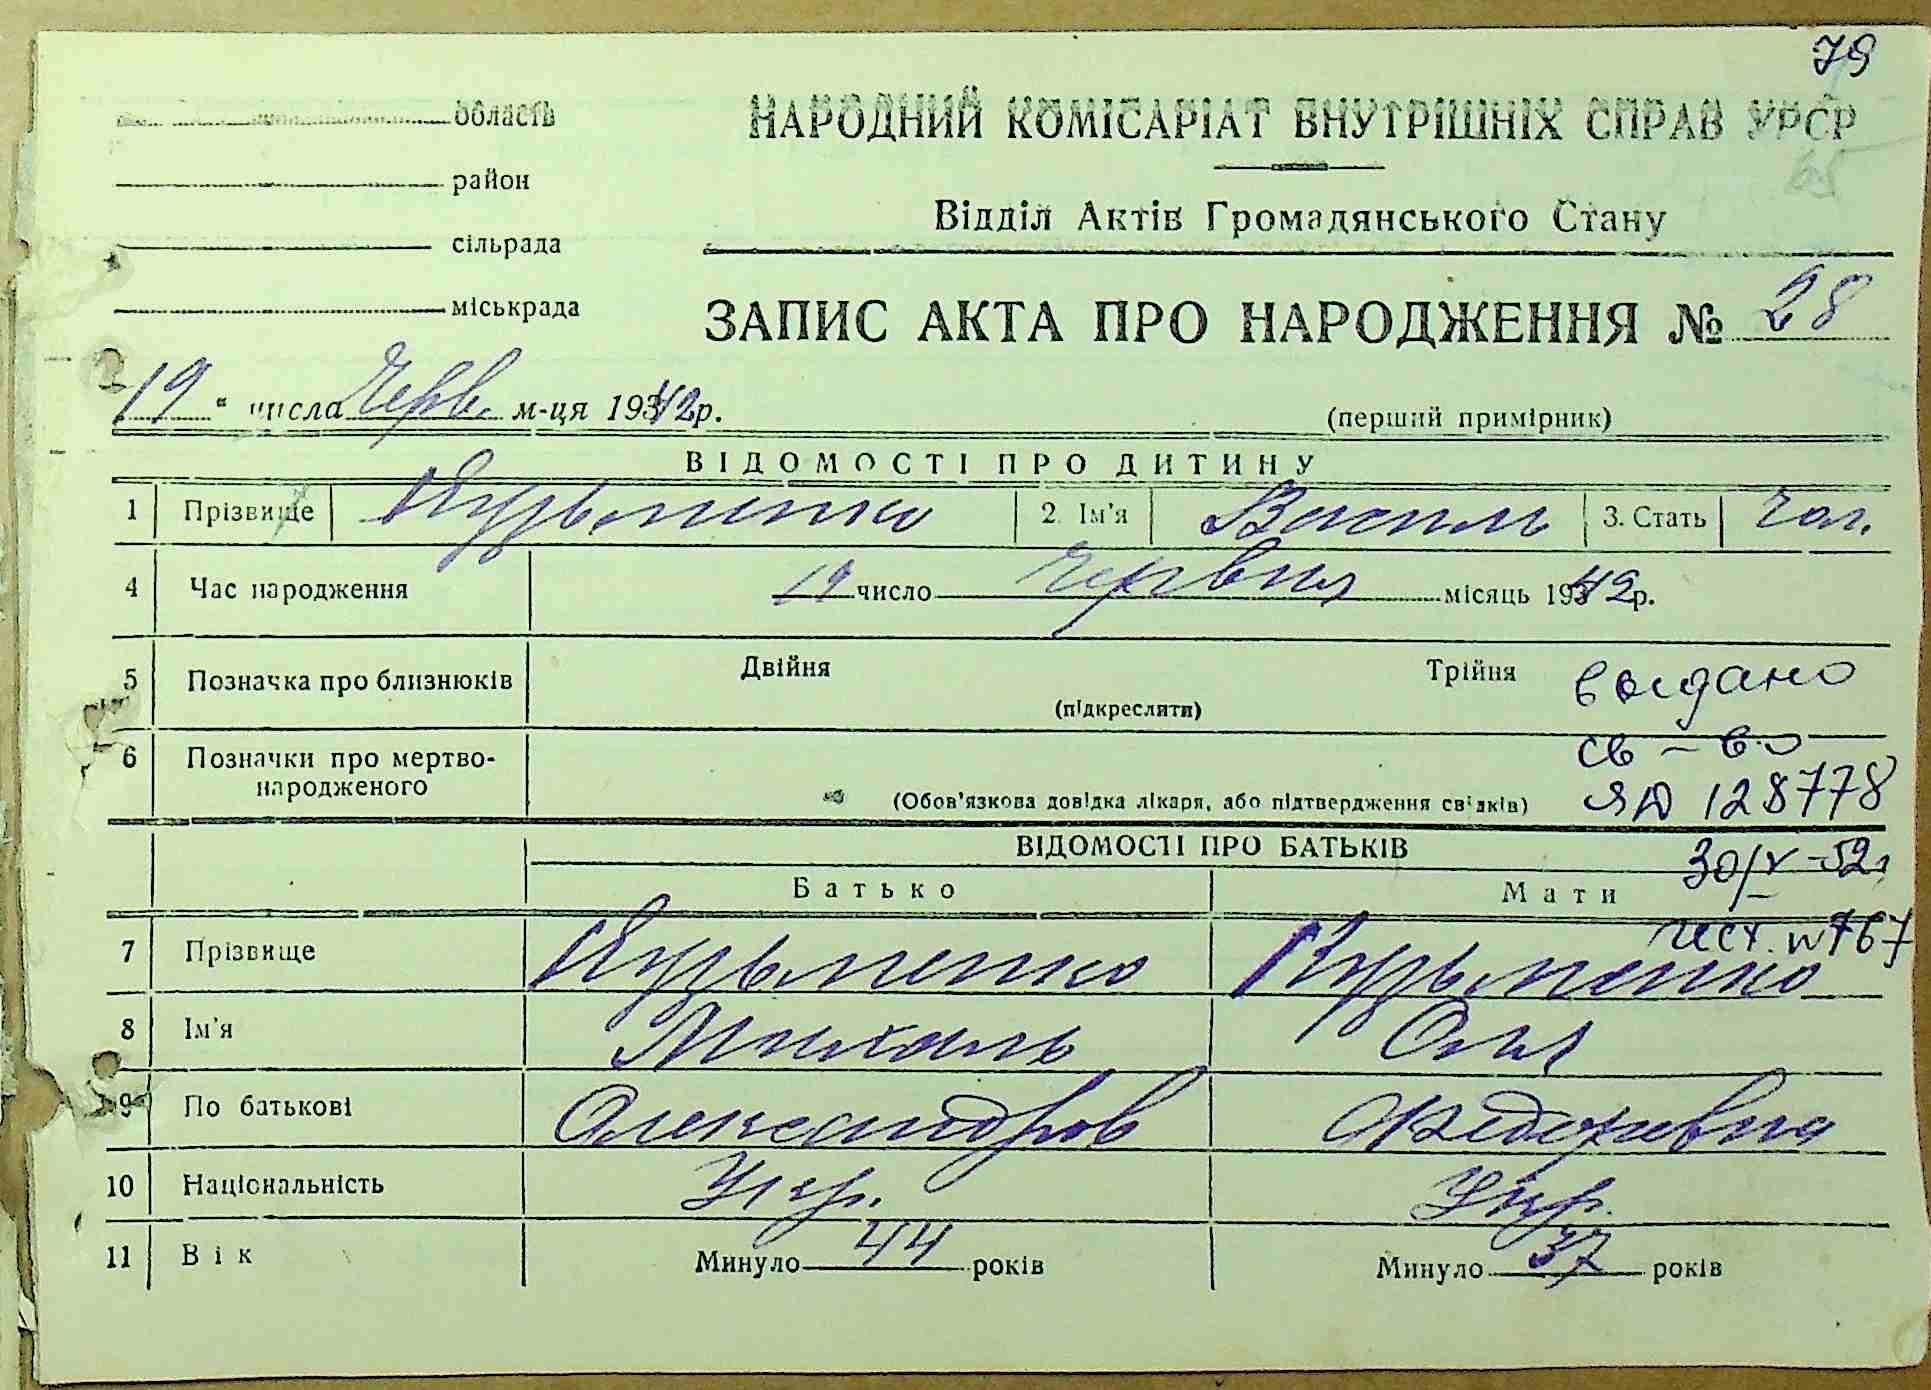 79
область
НАРОДНИЙ КОМІСАРІАТ ВНУТРІШНІХ СПРАВ УРСР
65
район
Відділ Актів Громадянського Стану
сільрада
міськрада
ЗАПИС АКТА ПРО НАРОДЖЕННЯ № 28
19 " числа Черв. м-ця 1942 р.
(перший примірник)
ВІДОМОСТІ ПРО ДИТИНУ
1 Прізвище 2. Ім'я Василь 3. Стать Чол.
4 Час народження 19 число Червня місяць 1942 р.
5 Позначка про близнюків Двійня Трійня (підкреслити)
выдано
6 Позначки про мертвонародженого
св-во
(Обов'язкова довідка лікаря, або підтвердження свідків) ЯД 128778
ВІДОМОСТІ ПРО БАТЬКІВ
30/V-52г
Батько Мати
7 Прізвище Кузьменко
8 Ім'я Михаль Оля
9 По батькові Олександров Федоровна
10 Національність Укр. Укр.
11 Вік Минуло 44 років Минуло 37 років